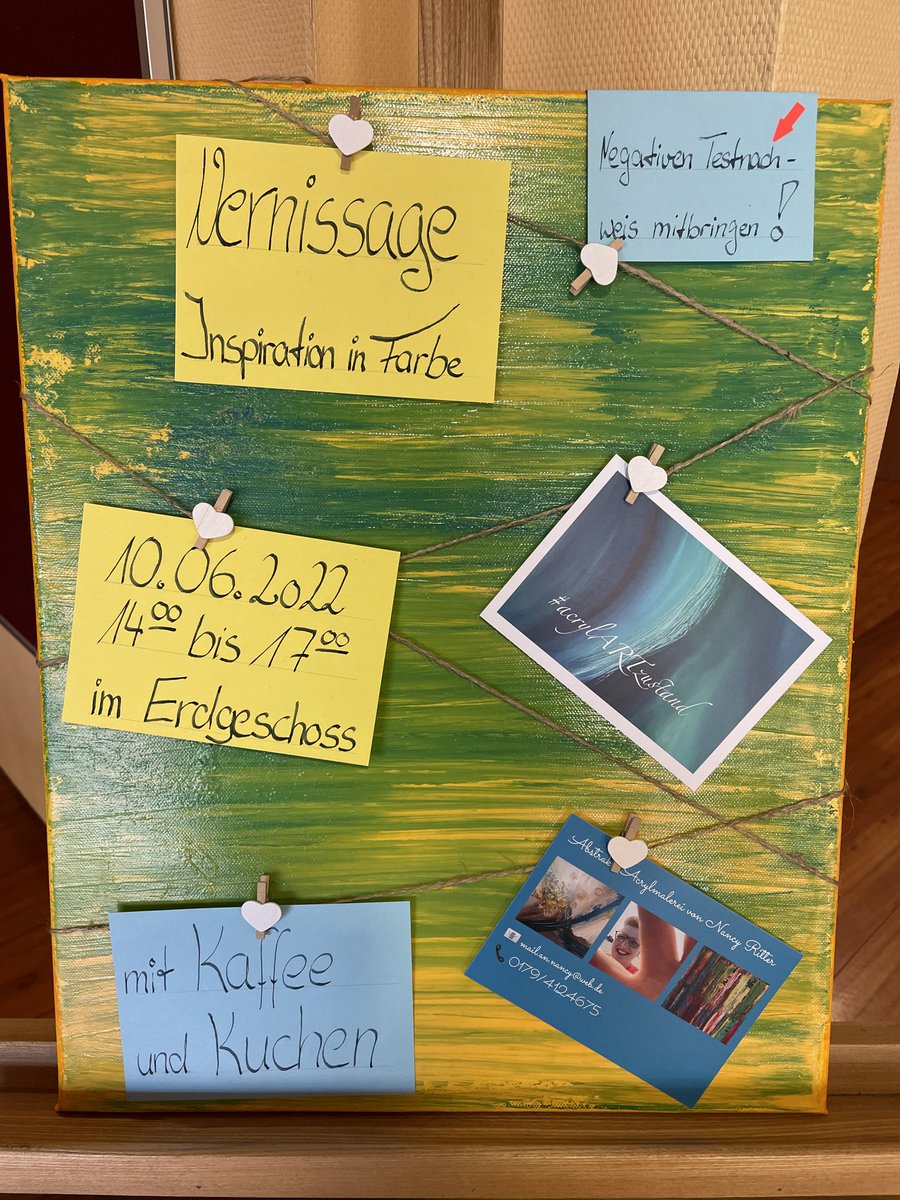 Vernissage
Inspiration in Farbe
Negativen Testnach-
weis mitbringen!
10.06.2022
14⁰⁰ bis 17⁰⁰
im Erdgeschoss
#acrylARTzustand
mit Kaffee
und Kuchen
Acrylmalerei von Nancy Ritter
mail.an.nancy@web.de
0179/4124675